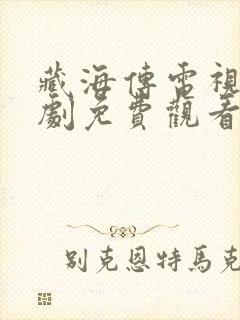 藏海傳電視
劇免費觀看
别克恩特馬克